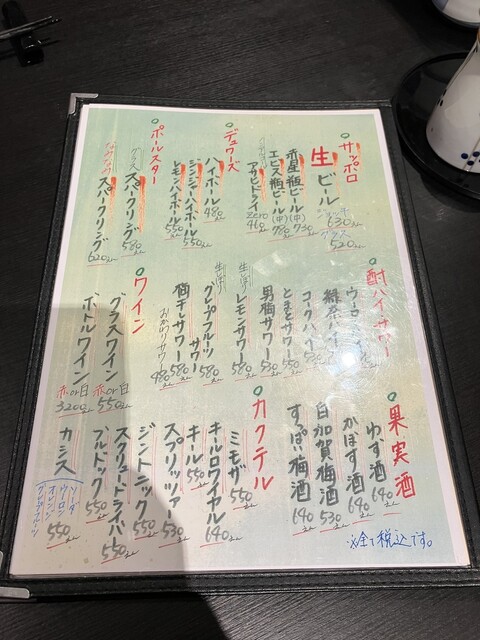 サッポロ
生ビール
ジョッキ 630
グラス 520
赤星瓶ビール(中) 730
エビス瓶ビール(中) 780
アサヒドライゼロ 460
デュワーズ
ハイボール 480
ジンジャーハイボール 550
レモンハイボール 550
ポールスター
グラス スパークリング 580
スパークリング 620
酎ハイ・サワー
ウーロンハイ
緑茶ハイ
コークハイ 550
とまとサワー 550
男梅サワー 530
生しぼり レモンサワー 580
生しぼり グレープフルーツ 580
梅干しサワー 580
おかわりサワー 480
ワイン
グラスワイン 赤or白 550
ボトルワイン 赤or白 3200
果実酒
ゆず酒 640
かぼす酒 640
白加賀梅酒 530
すっぱい梅酒 640
カクテル
ミモザ 550
キールロワイヤル 640
キール 550
スプリッツァ 530
ジントニック 550
スクリュードライバー 550
ブルドック 550
カシス 550
ソーダ
ウーロン
オレンジ
グレープフルーツ
※全て税込です。